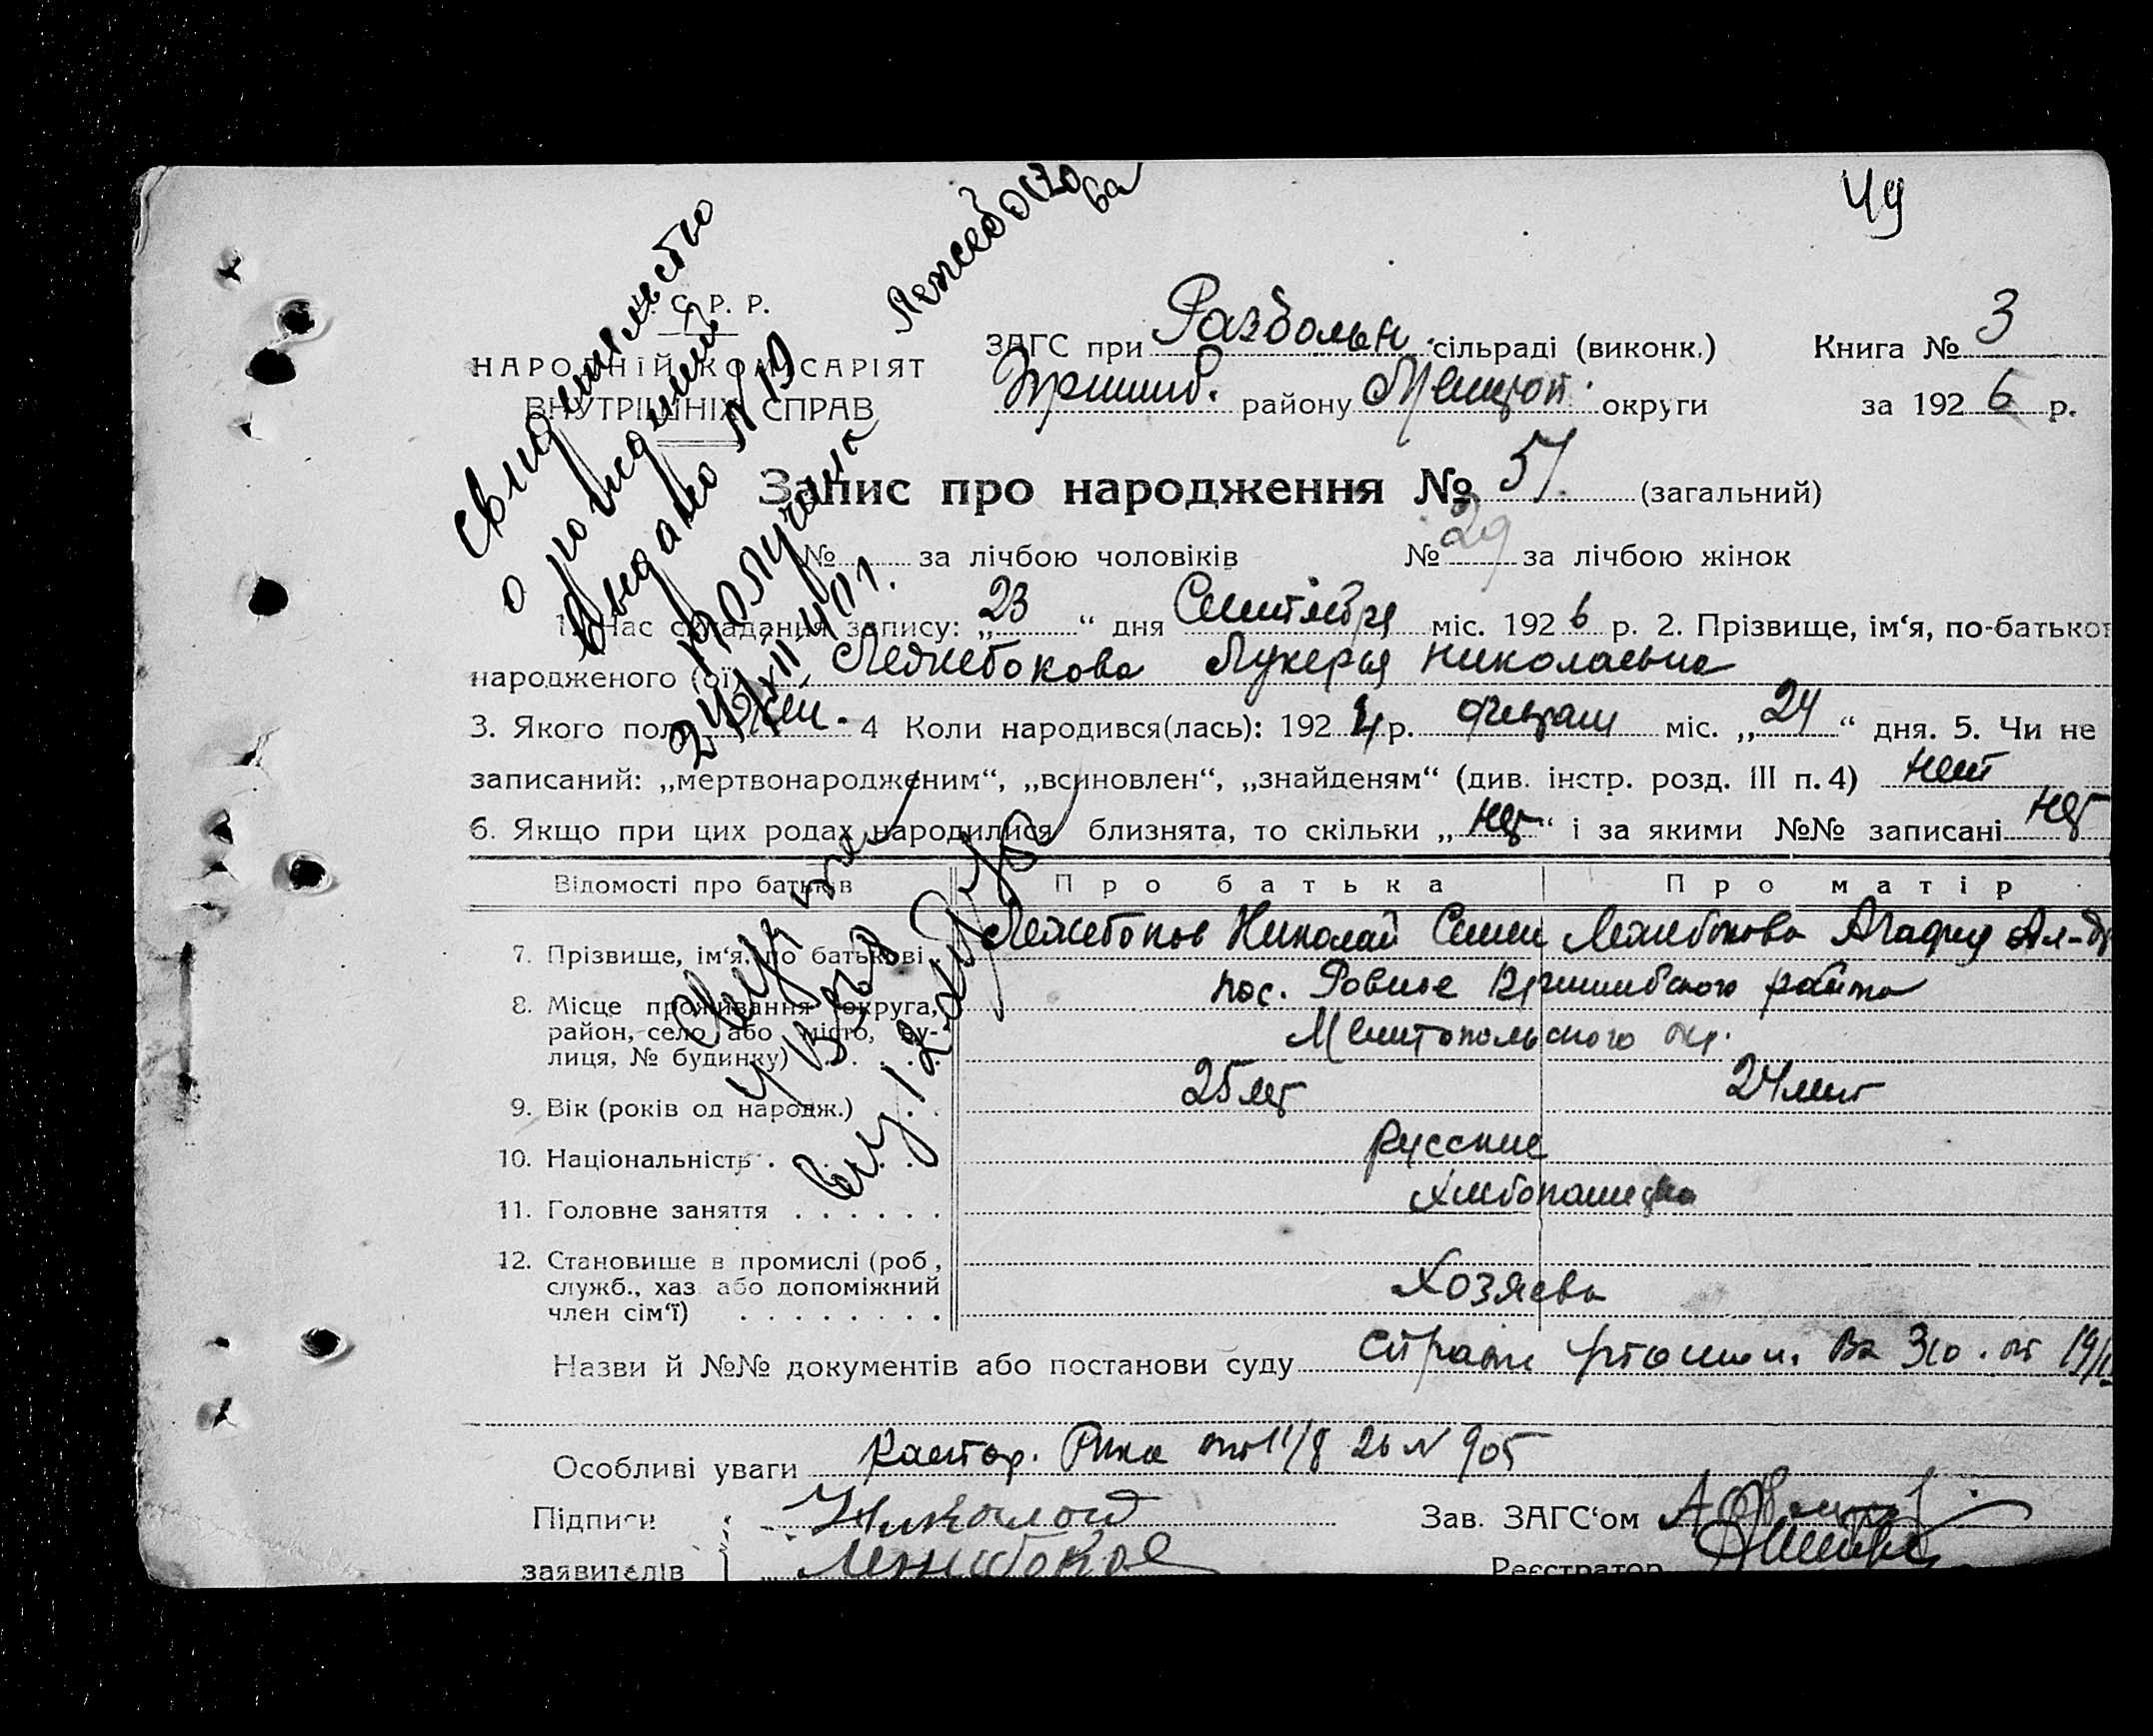 49
Лежебокова
свидетельство
о рождении
выдано № 19
Получена
24/XII 41 г.
С. Р. Р.
НАРОДНІЙ КОМІСАРІЯТ
ВНУТРІШНІХ СПРАВ
ЗАГС при Развольн. сільраді (виконк.)
Пришиб. району Мелитоп. округи
Книга № 3
за 1926 р.
Запис про народження № 51. (загальний)
№ за лічбою чоловіків № 29 за лічбою жінок
1. Час складання запису: „23“ дня Сентября міс. 1926 р. 2. Прізвище, ім‘я, по-батькові
народженого (ої) Лежебокова Лукерья Николаевна
3. Якого полу жен. 4 Коли народився(лась): 1924 р. февраля міс. „24“ дня. 5. Чи не
записаний: „мертвонародженим“, „всиновлен“, „знайденям“ (див. інстр. розд. III п. 4) нет
6. Якщо при цих родах народилися близнята, то скільки „нет“ і за якими №№ записані нет
Відомості про батьків Про батька Про матір
7. Прізвище, ім‘я, по батькові Лежебоков Николай Семен Лежебокова Агафия Ал-др
8. Місце проживання (округа, район, село або місто, вулиця, № будинку) пос. Ровное Пришибского района
Мелитопольского окр.
9. Вік (років од народж.) 25 лет 24 лет
10. Національність русские
11. Головне заняття хлебопашество
12. Становище в промислі (роб, служб., хаз. або допоміжний член сім‘ї) Хозяева
Назви й №№ документів або постанови суду 310 от 19/
Особливі уваги Рика от 11/8 26 № 905
Підписи Николай
заявителів Лежебоков
Зав. ЗАГС‘ом
Реєстратор